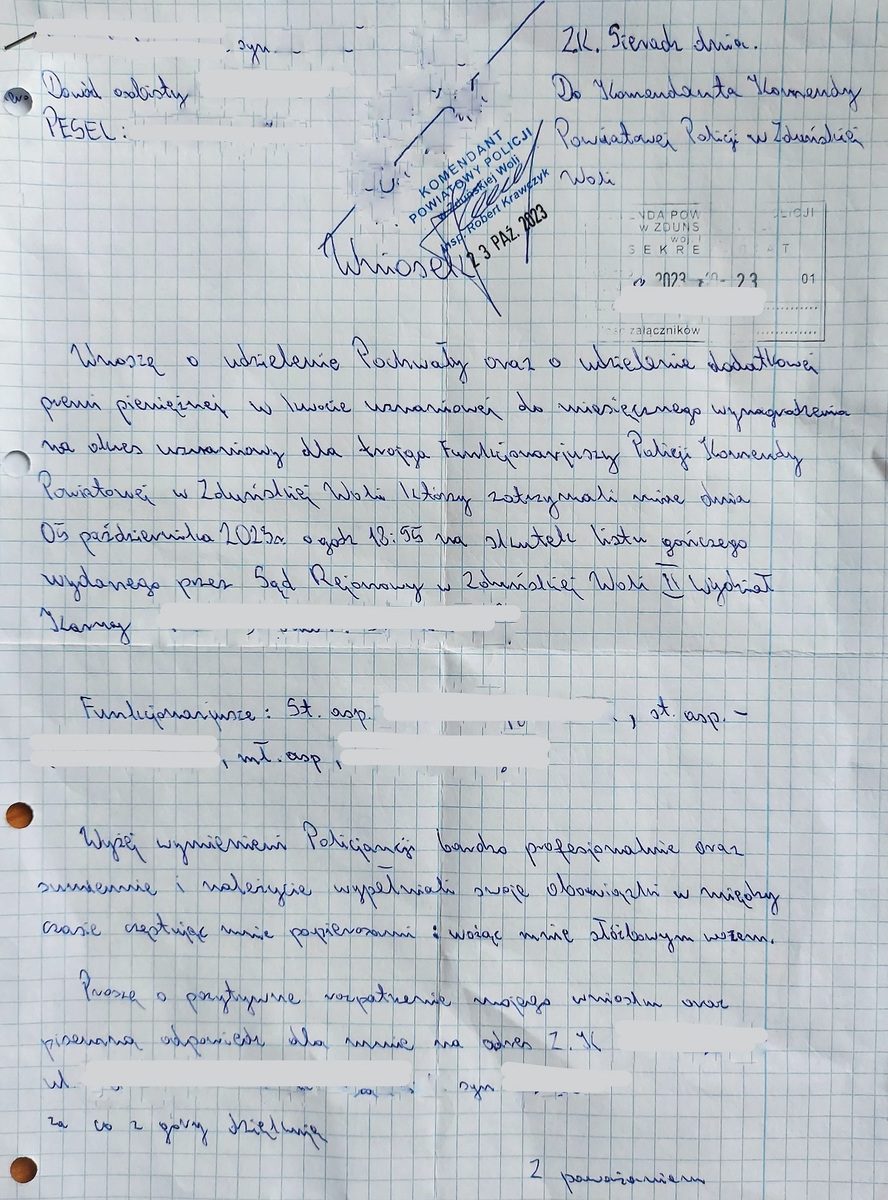 syn.
ZK. Sieradz dnia.
Dowód osobisty
Do Komendanta Komendy
PESEL:
Powiatowej Policji w Zduńskiej
Woli
KOMENDANT
POWIATOWY POLICJI
w Zduńskiej Woli
insp. Robert Krawczyk
23 PAŹ. 2023
NDA POW LICJI
W ZDUŃS
SEKRE AT
2023 -10- 23 01
załączników
Wniosek
Wnoszę o udzielenie Pochwały oraz o udzielenie dodatkowej
premi pieniężnej w kwocie uznaniowej do miesięcznego wynagrodzenia
na okres uznaniowy dla trojga Funkcjonarjuszy Policji Komendy
Powiatowej w Zduńskiej Woli którzy zatrzymali mnie dnia
05 października 2023r. o godz 18:55 na skutek listu gończego
wydanego przez Sąd Rejonowy w Zduńskiej Woli II Wydział
Karny
Funkcjonarjusze: St. asp. , st. asp. -
, mł. asp ,
Wyżej wymienieni Policjanci bardzo profesjonalnie oraz
sumiennie i należycie wypełniali swoje obowiązki w między
czasie częstując mnie papierosami i wożąc mnie słóżbowym wozem.
Proszę o pozytywne rozpatrzenie mojego wniosku oraz
pisemną odpowiedź dla mnie na adres Z.K
ul syn
za co z góry dziękuję
Z poważaniem